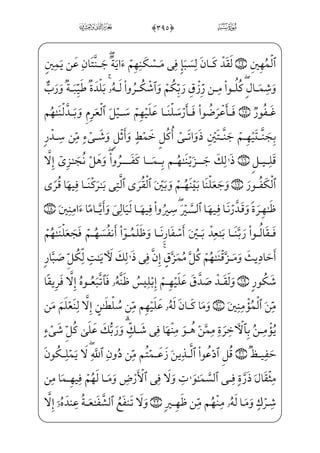 سُورَةُ سَبَإٍ ﴿٣٩٥﴾
ٱلْمُهِينِ ۝ لَقَدْ كَانَ لِسَبَإٍ فِى مَسْكَنِهِمْ ءَايَةٌ ۖ جَنَّتَانِ عَن يَمِينٍ
وَشِمَالٍ ۖ كُلُوا۟ مِن رِّزْقِ رَبِّكُمْ وَٱشْكُرُوا۟ لَهُۥ ۚ بَلْدَةٌ طَيِّبَةٌ وَرَبٌّ
غَفُورٌ ۝ فَأَعْرَضُوا۟ فَأَرْسَلْنَا عَلَيْهِمْ سَيْلَ ٱلْعَرِمِ وَبَدَّلْنَٰهُم
بِجَنَّتَيْهِمْ جَنَّتَيْنِ ذَوَاتَىْ أُكُلٍ خَمْطٍ وَأَثْلٍ وَشَىْءٍ مِّن سِدْرٍ
قَلِيلٍ ۝ ذَٰلِكَ جَزَيْنَٰهُم بِمَا كَفَرُوا۟ ۖ وَهَلْ نُجَٰزِىٓ إِلَّا
ٱلْكَفُورَ ۝ وَجَعَلْنَا بَيْنَهُمْ وَبَيْنَ ٱلْقُرَى ٱلَّتِى بَٰرَكْنَا فِيهَا قُرًى
ظَٰهِرَةً وَقَدَّرْنَا فِيهَا ٱلسَّيْرَ ۖ سِيرُوا۟ فِيهَا لَيَالِىَ وَأَيَّامًا ءَامِنِينَ ۝
فَقَالُوا۟ رَبَّنَا بَٰعِدْ بَيْنَ أَسْفَارِنَا وَظَلَمُوٓا۟ أَنفُسَهُمْ فَجَعَلْنَٰهُمْ
أَحَادِيثَ وَمَزَّقْنَٰهُمْ كُلَّ مُمَزَّقٍ ۚ إِنَّ فِى ذَٰلِكَ لَءَايَٰتٍ لِّكُلِّ صَبَّارٍ
شَكُورٍ ۝ وَلَقَدْ صَدَّقَ عَلَيْهِمْ إِبْلِيسُ ظَنَّهُۥ فَٱتَّبَعُوهُ إِلَّا فَرِيقًا
مِّنَ ٱلْمُؤْمِنِينَ ۝ وَمَا كَانَ لَهُۥ عَلَيْهِم مِّن سُلْطَٰنٍ إِلَّا لِنَعْلَمَ مَن
يُؤْمِنُ بِٱلْءَاخِرَةِ مِمَّنْ هُوَ مِنْهَا فِى شَكٍّ ۗ وَرَبُّكَ عَلَىٰ كُلِّ شَىْءٍ
حَفِيظٌ ۝ قُلِ ٱدْعُوا۟ ٱلَّذِينَ زَعَمْتُم مِّن دُونِ ٱللَّهِ ۖ لَا يَمْلِكُونَ
مِثْقَالَ ذَرَّةٍ فِى ٱلسَّمَٰوَٰتِ وَلَا فِى ٱلْأَرْضِ وَمَا لَهُمْ فِيهِمَا مِن
شِرْكٍ وَمَا لَهُۥ مِنْهُم مِّن ظَهِيرٍ ۝ وَلَا تَنفَعُ ٱلشَّفَٰعَةُ عِندَهُۥٓ إِلَّا